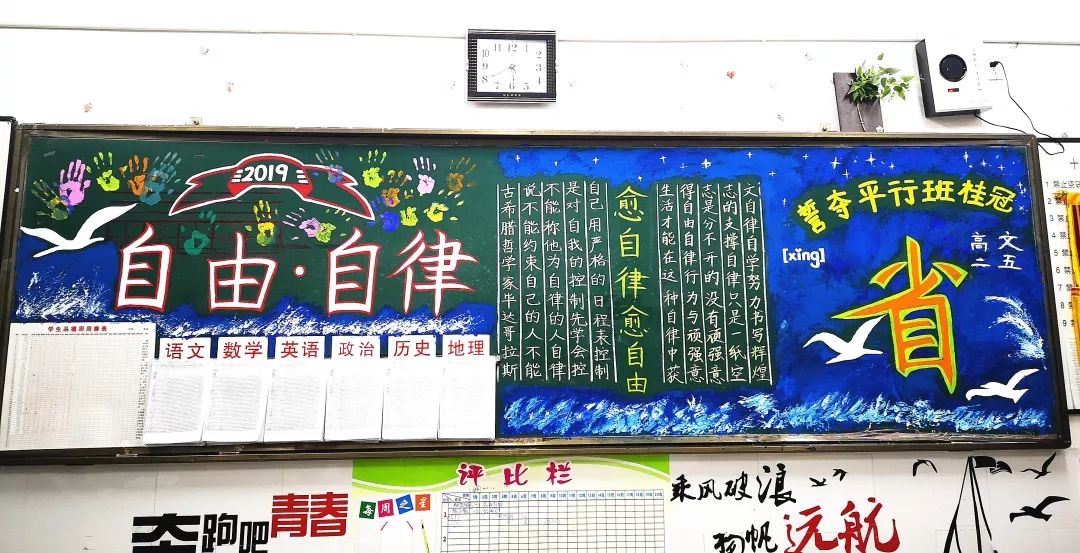 2019
自由·自律
古希腊哲学家毕达哥拉斯
说不能约束自己的人不能
不能称他为自律的人自律
是对自我的控制先学会控
自己用严格的日程来控制
愈自律愈自由
生活才能在这种自律中获
得自由自律行为与顽强意
志是分不开的没有顽强意
志的支撑自律只是一纸空
文自律自学努力书写辉煌
誓夺平行班桂冠
[xǐng]
省
高二
文五
学生品德周周赛表
语文
数学
英语
政治
历史
地理
奔跑吧
青春
评比栏
每周之星
乘风破浪
扬帆远航